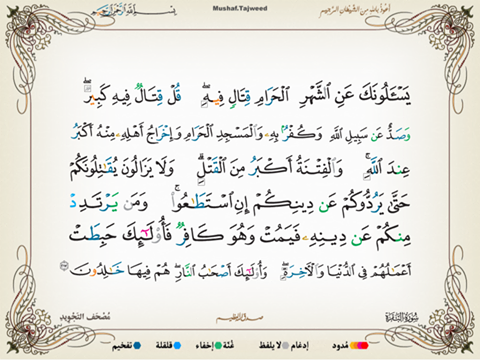 أعوذ بالله من الشيطان الرجيم
Mushaf.Tajweed
بسم الله الرحمن الرحيم
يَسْـَٔلُونَكَ عَنِ الشَّهْرِ الْحَرَامِ قِتَالٍ فِيهِ ۖ قُلْ قِتَالٌ فِيهِ كَبِيرٌ ۖ
وَصَدٌّ عَن سَبِيلِ اللَّهِ وَكُفْرٌۢ بِهِۦ وَالْمَسْجِدِ الْحَرَامِ وَإِخْرَاجُ أَهْلِهِۦ مِنْهُ أَكْبَرُ
عِندَ اللَّهِ ۚ وَالْفِتْنَةُ أَكْبَرُ مِنَ الْقَتْلِ ۗ وَلَا يَزَالُونَ يُقَٰتِلُونَكُمْ
حَتَّىٰ يَرُدُّوكُمْ عَن دِينِكُمْ إِنِ اسْتَطَٰعُوا۟ ۚ وَمَن يَرْتَدِدْ
مِنكُمْ عَن دِينِهِۦ فَيَمُتْ وَهُوَ كَافِرٌ فَأُو۟لَٰٓئِكَ حَبِطَتْ
أَعْمَٰلُهُمْ فِي الدُّنْيَا وَالْءَاخِرَةِ ۖ وَأُو۟لَٰٓئِكَ أَصْحَٰبُ النَّارِ ۖ هُمْ فِيهَا خَٰلِدُونَ ٢١٧
سُورَةُ الْبَقَرَة
صدق الله العظيم
مُصْحَف التَّجْوِيد
مُدود إدغام، لا يلفظ غُنّة، إخفاء قلقلة تفخيم